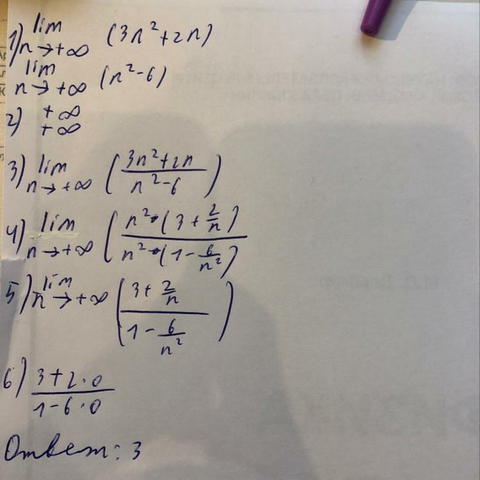 1) lim n→+∞ (3n²+2n)
lim n→+∞ (n²-6)
2) +∞
+∞
3) lim n→+∞ (3n²+2n / n²-6)
4) lim n→+∞ (n²·(3+2/n) / n²·(1-6/n²))
5) lim n→+∞ (3+2/n / 1-6/n²)
6) 3+2·0 / 1-6·0
Ответ: 3